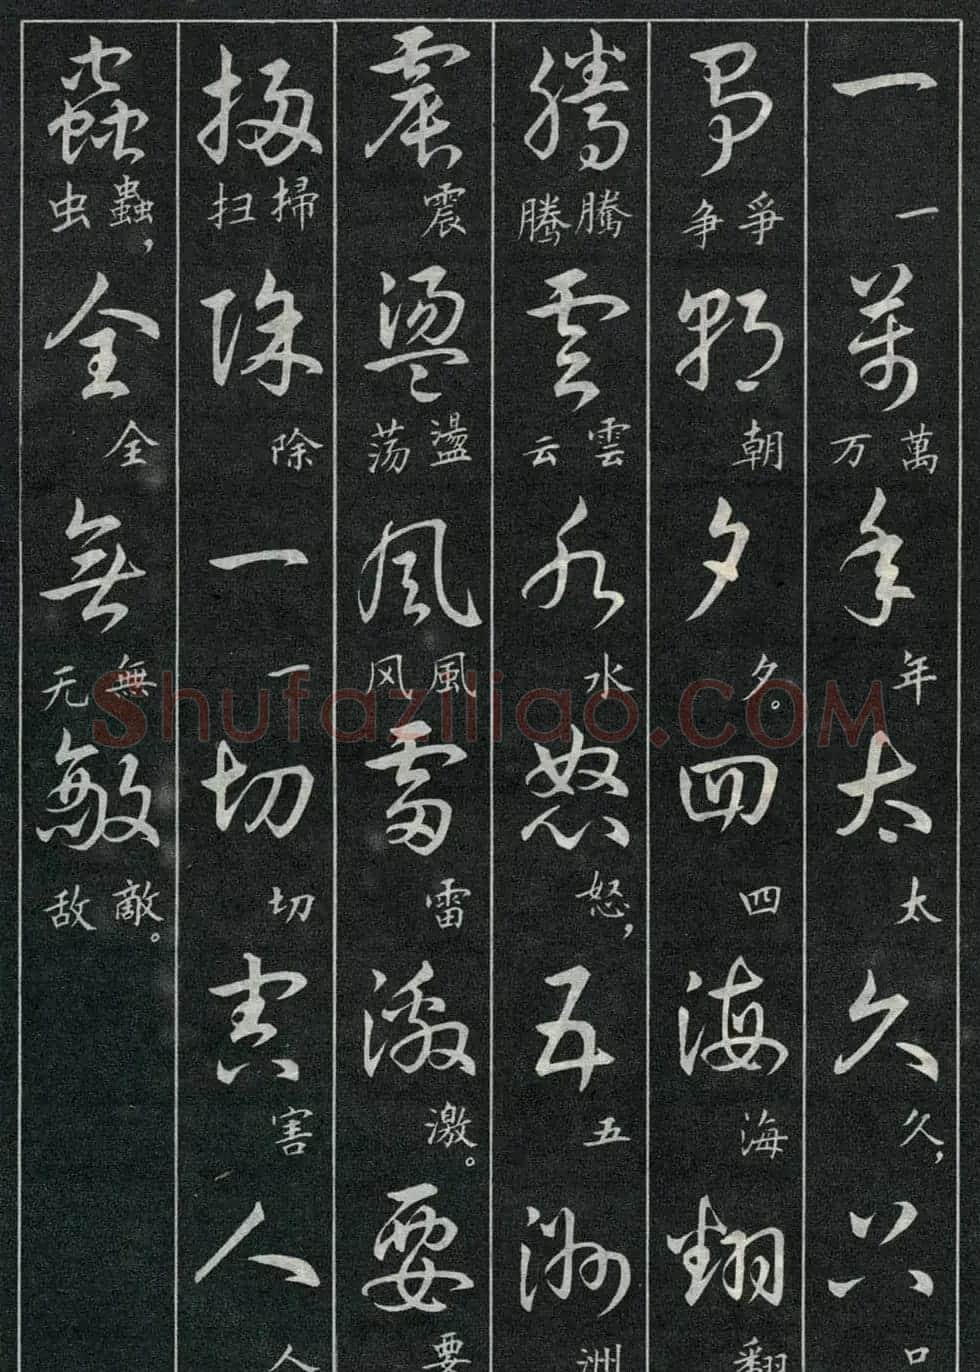 一 一 萬 萬 万 年 年 太 太 久 久， 只
爭 爭 争 朝 朝 夕 夕。 四 四 海 海 翻 翻
騰 騰 腾 雲 雲 云 水 水 怒 怒， 五 五 洲 洲
震 震 盪 盪 荡 風 風 风 雷 雷 激 激。 要 要
掃 掃 扫 除 除 一 一 切 切 害 害 人 人
蟲 蟲， 虫 全 全 無 無 无 敵 敵。 敌
Shufaziliao.COM